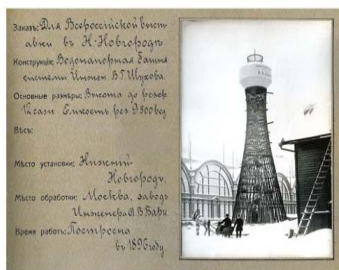 Заказъ: Для Всероссiйской выст
авки въ Н-Новгородѣ
Конструкцiя: Водонапорная башня
системы Инжен. В Г Шухова.
Основные размѣры: Высота до резер.
12 саж Емкость рез 9500 вед
Вѣсъ:
Мѣсто установки: Нижнiй
Новгородъ.
Мѣсто обработки: Москва, заводъ
Инженера А.В Бари.
Время работъ: Построена
въ 1896 году.